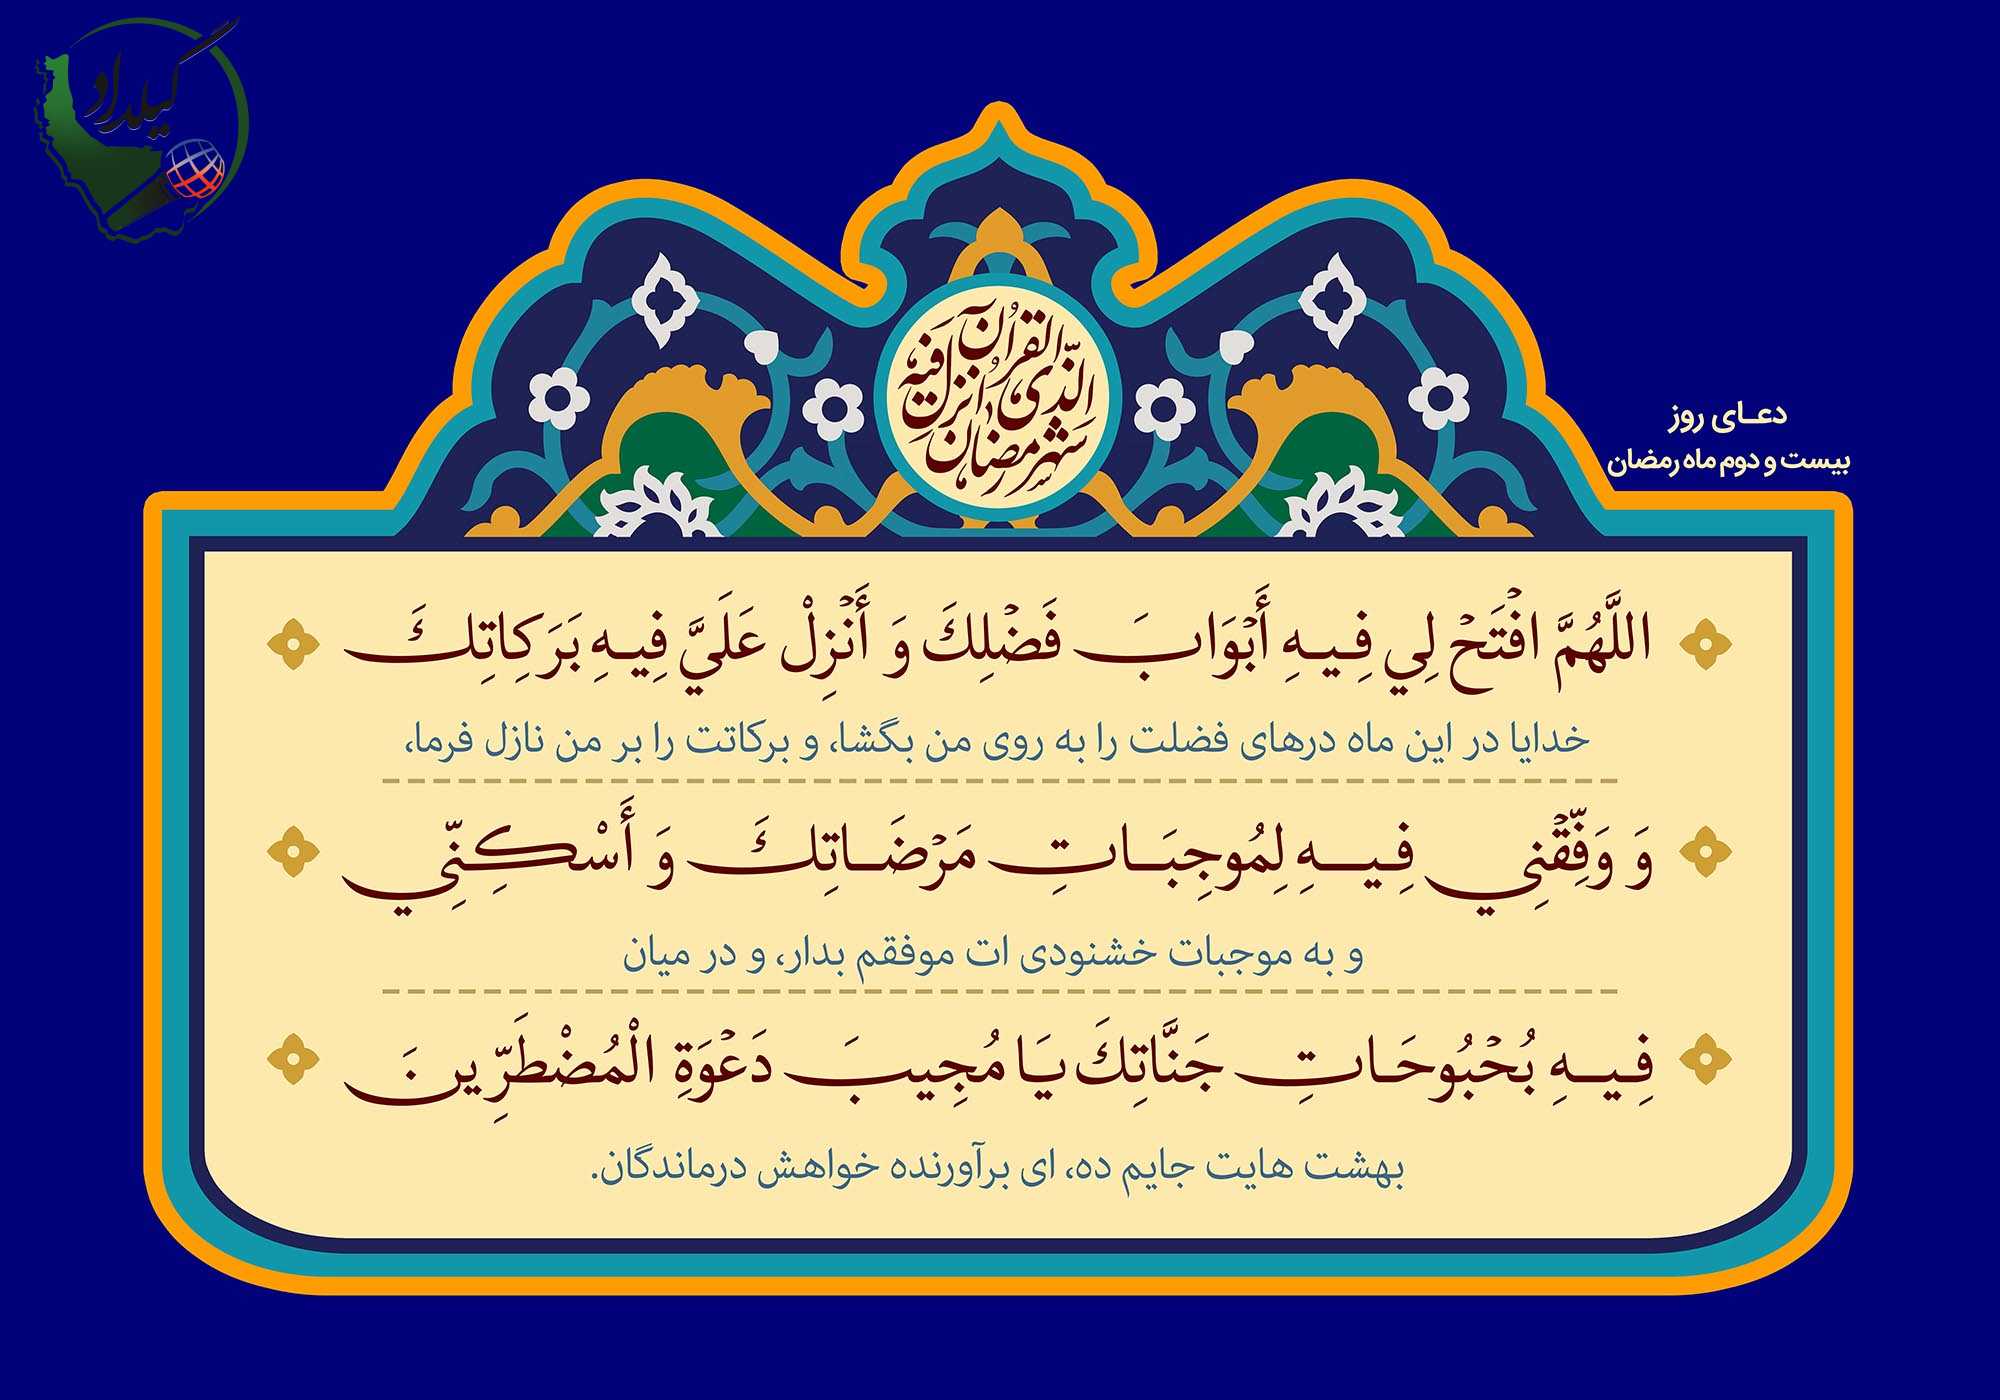 گیلداد
شهر رمضان الذی انزل فیه القرآن
دعای روز
بیست و دوم ماه رمضان
اللَّهُمَّ افْتَحْ لِي فِيهِ أَبْوَابَ فَضْلِكَ وَ أَنْزِلْ عَلَيَّ فِيهِ بَرَكَاتِكَ
خدایا در این ماه درهای فضلت را به روی من بگشا، و برکاتت را بر من نازل فرما،
وَ وَفِّقْنِي فِيهِ لِمُوجِبَاتِ مَرْضَاتِكَ وَ أَسْكِنِّي
و به موجبات خشنودی ات موفقم بدار، و در میان
فِيهِ بُحْبُوحَاتِ جَنَّاتِكَ يَا مُجِيبَ دَعْوَةِ الْمُضْطَرِّينَ
بهشت هایت جایم ده، ای برآورنده خواهش درماندگان.